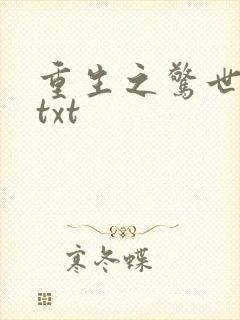 重生之驚世
txt
寒冬蝶